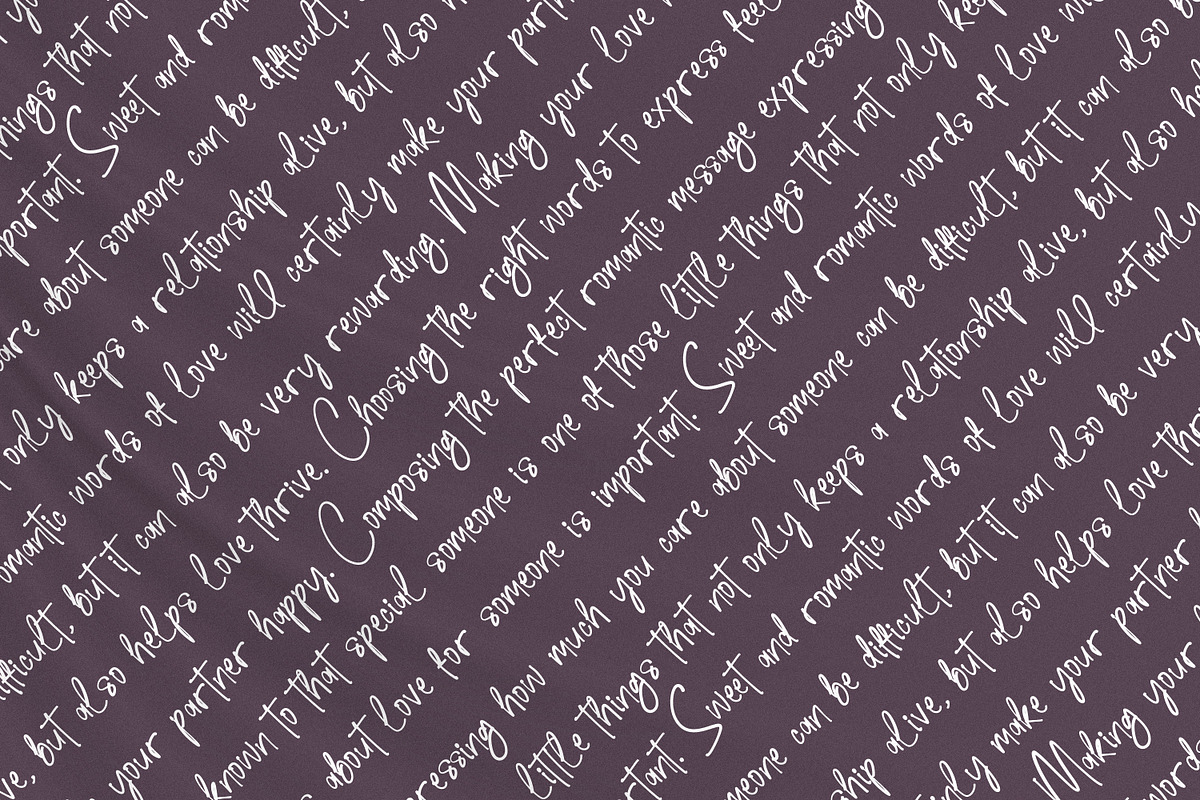 hings that not
portant. Sweet and rom
care about someone can be difficult,
only keeps a relationship alive, but also
omantic words of love will certainly make your partn
difficult, but it can also be very rewarding. Making your love
ve, but also helps love thrive. Choosing the right words to express feel
your partner happy. Composing the perfect romantic message expressing
known to that special someone is one of those little things that not only kee
about love for someone is important. Sweet and romantic words of love wi
ressing how much you care about someone can be difficult, but it can also b
little things that not only keeps a relationship alive, but also h
rtant. Sweet and romantic words of love will certainly
meone can be difficult, but it can also be very
ship alive, but also helps love thr
inly make your partner
Making your
words